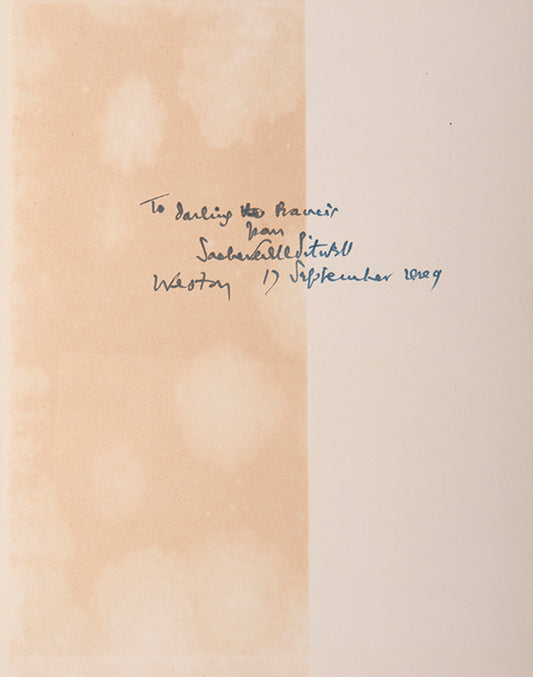 To darling Francis
from
Sacheverell Sitwell
Weston 17 September